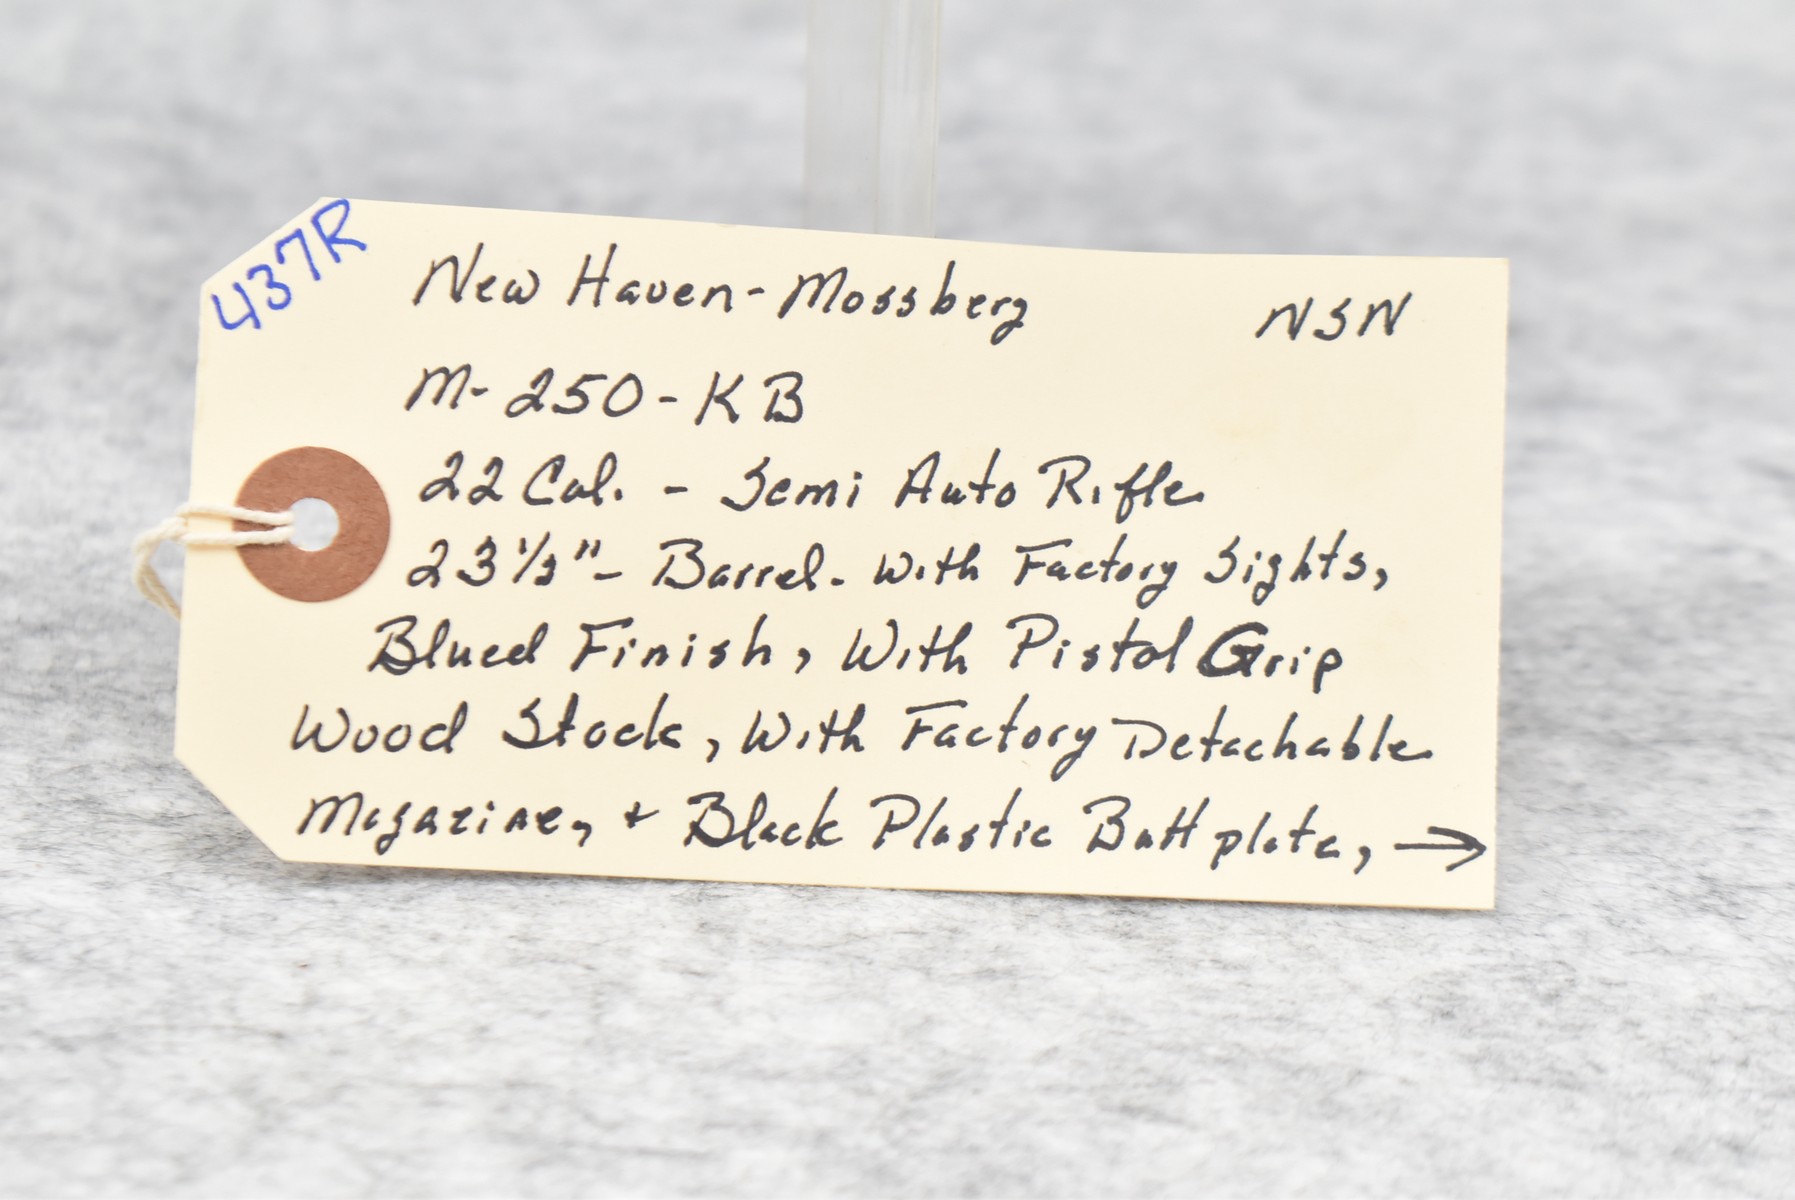 437R
New Haven-Mossberg NSN
M-250-KB
22 Cal. - Semi Auto Rifle
23 1/2"- Barrel- With Factory Sights,
Blued Finish, With Pistol Grip
Wood Stock, With Factory Detachable
Magazine, + Black Plastic Buttplate, →